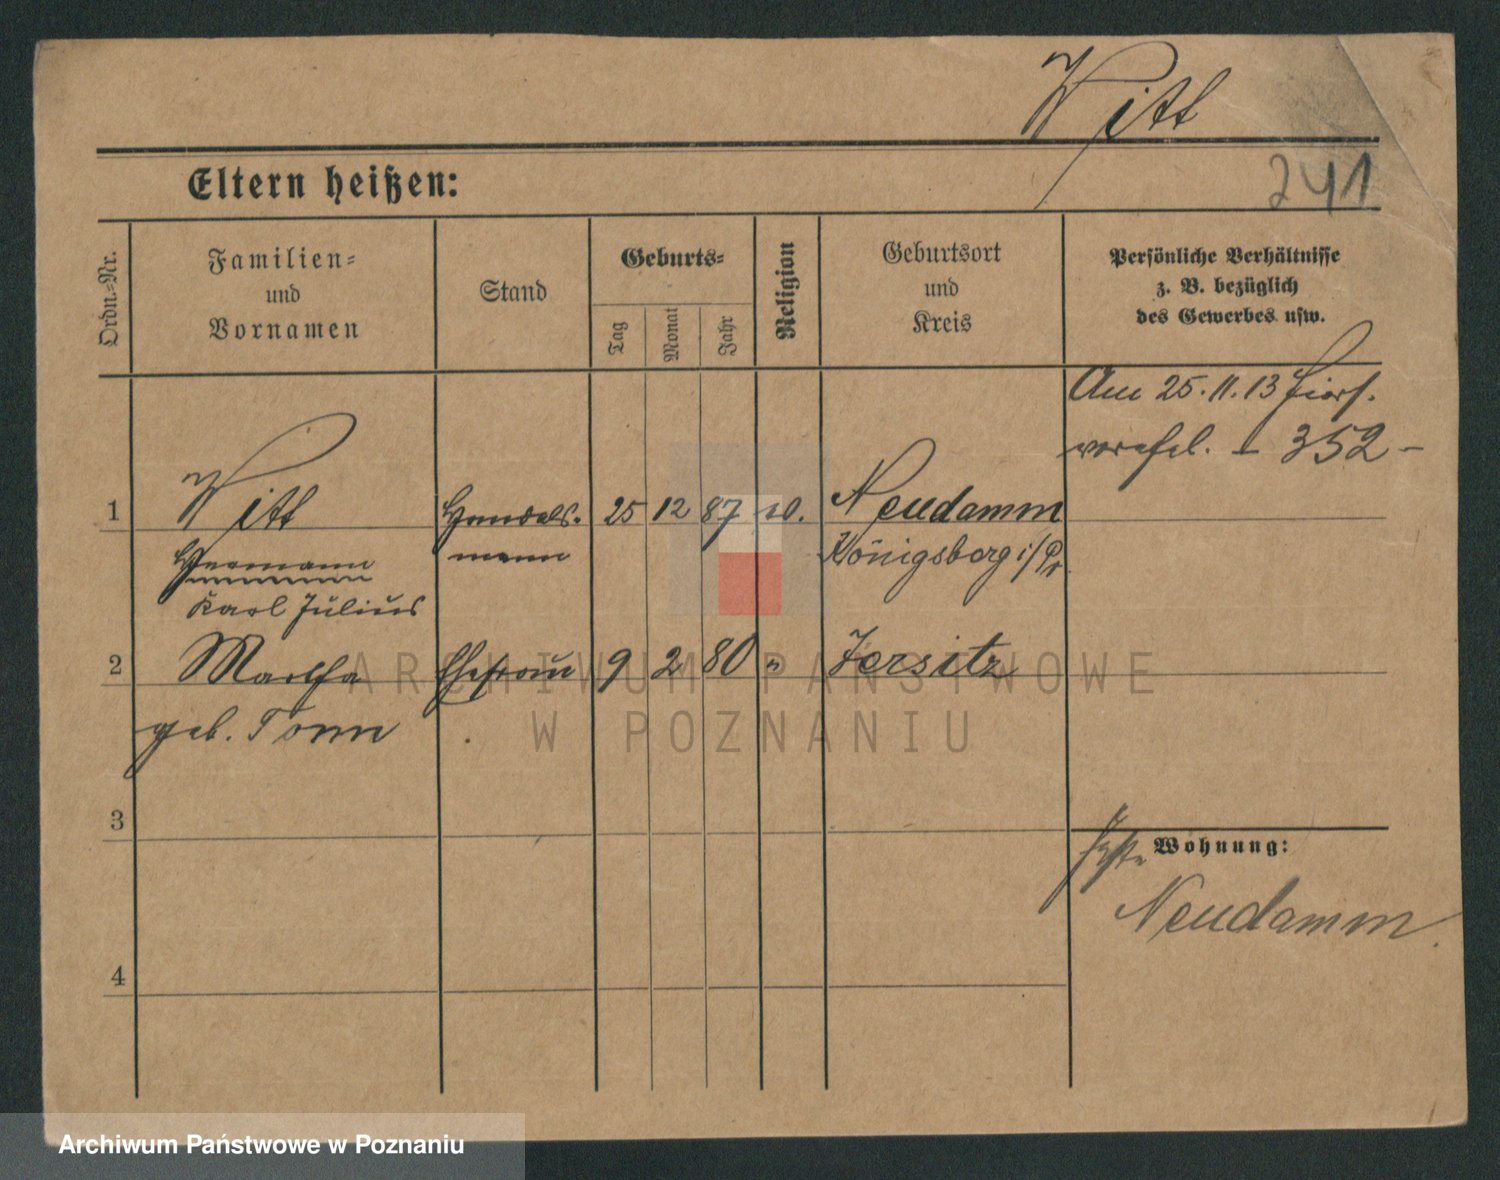 Witt
Eltern heißen:
241
Ordn.-Nr.
Familien-
und
Vornamen
Stand
Geburts-
Tag
Monat
Jahr
Religion
Geburtsort
und
Kreis
Persönliche Verhältnisse
z. B. bezüglich
des Gewerbes usw.
Am 25.11.13
352 –
1 Witt Handels- 25 12 87 Neudamm
Hermann mann Königsberg i/Pr.
Karl Julius
2 Martha Ehefrau 9 2 80 " Jersitz
geb. Tonn
3
Wohnung:
Neudamm.
4
ARCHIWUM PAŃSTWOWE
W POZNANIU
Archiwum Państwowe w Poznaniu